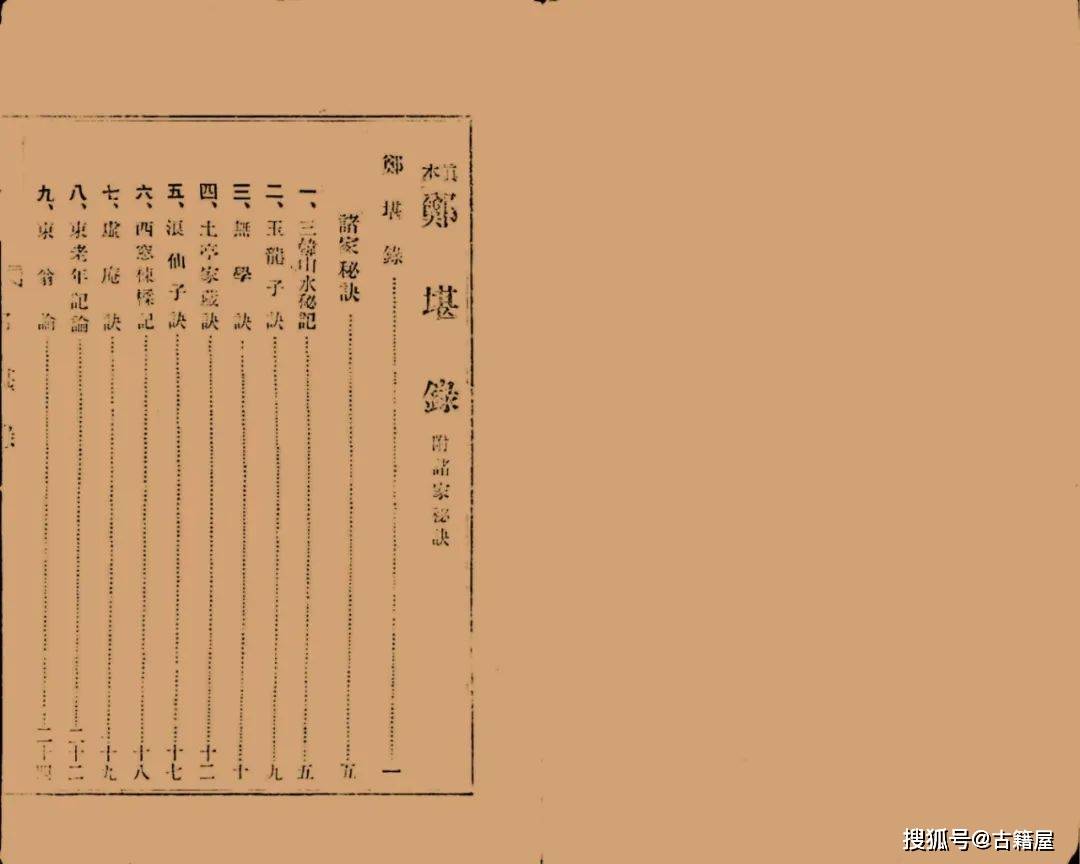 眞本 鄭堪錄 附諸家秘訣
鄭堪錄……一
諸家秘訣……五
一、三韓山水秘記……五
二、玉龍子訣……九
三、無學訣……十
四、土亭家藏訣……十二
五、浪仙子訣……十七
六、西窓棟樑記……十八
七、虛庵訣……十九
八、東老年記論……二十二
九、東翁論……二十四
搜狐号@古籍屋